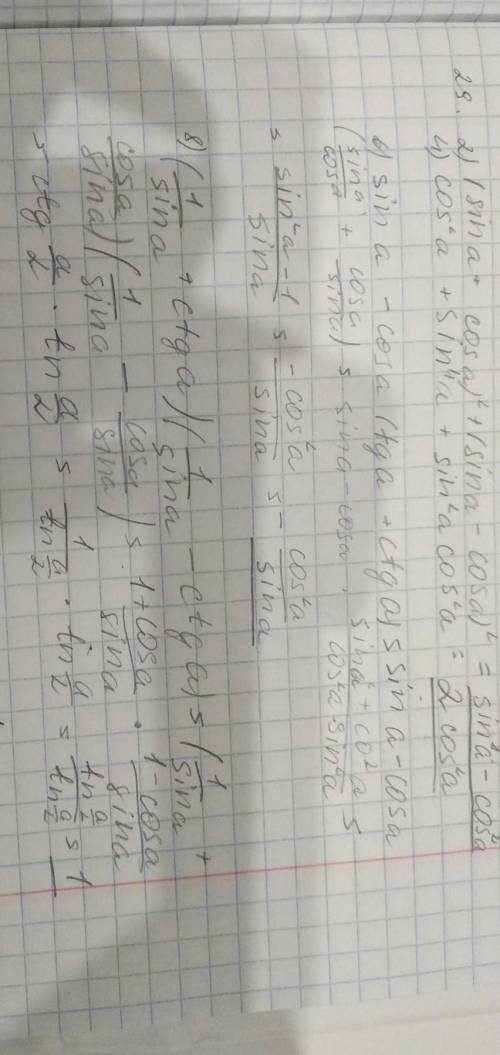 29. 2) (sina + cosa)² + (sina - cosa)² = sin²a - cos²a
4) cos²a + sin⁴a + sin²a cos²a = 2 cos²a
6) sin a - cosa (tga + ctga) = sin a - cosa
(sina/cosa + cosa/sina) = sina - cosa · sina² + co²a / cosa sina =
= sin²a - 1 / sina = -cos²a / sina = - cos²a / sina
8) (1/sina + ctga)(1/sina - ctga) = (1/sina +
cosa/sina)(1/sina - cosa/sina) = 1+cosa/sina · 1-cosa/sina
= ctg a/2 · tn a/2 = 1/tn a/2 · tn a/2 = tn a/2 / tn a/2 = 1